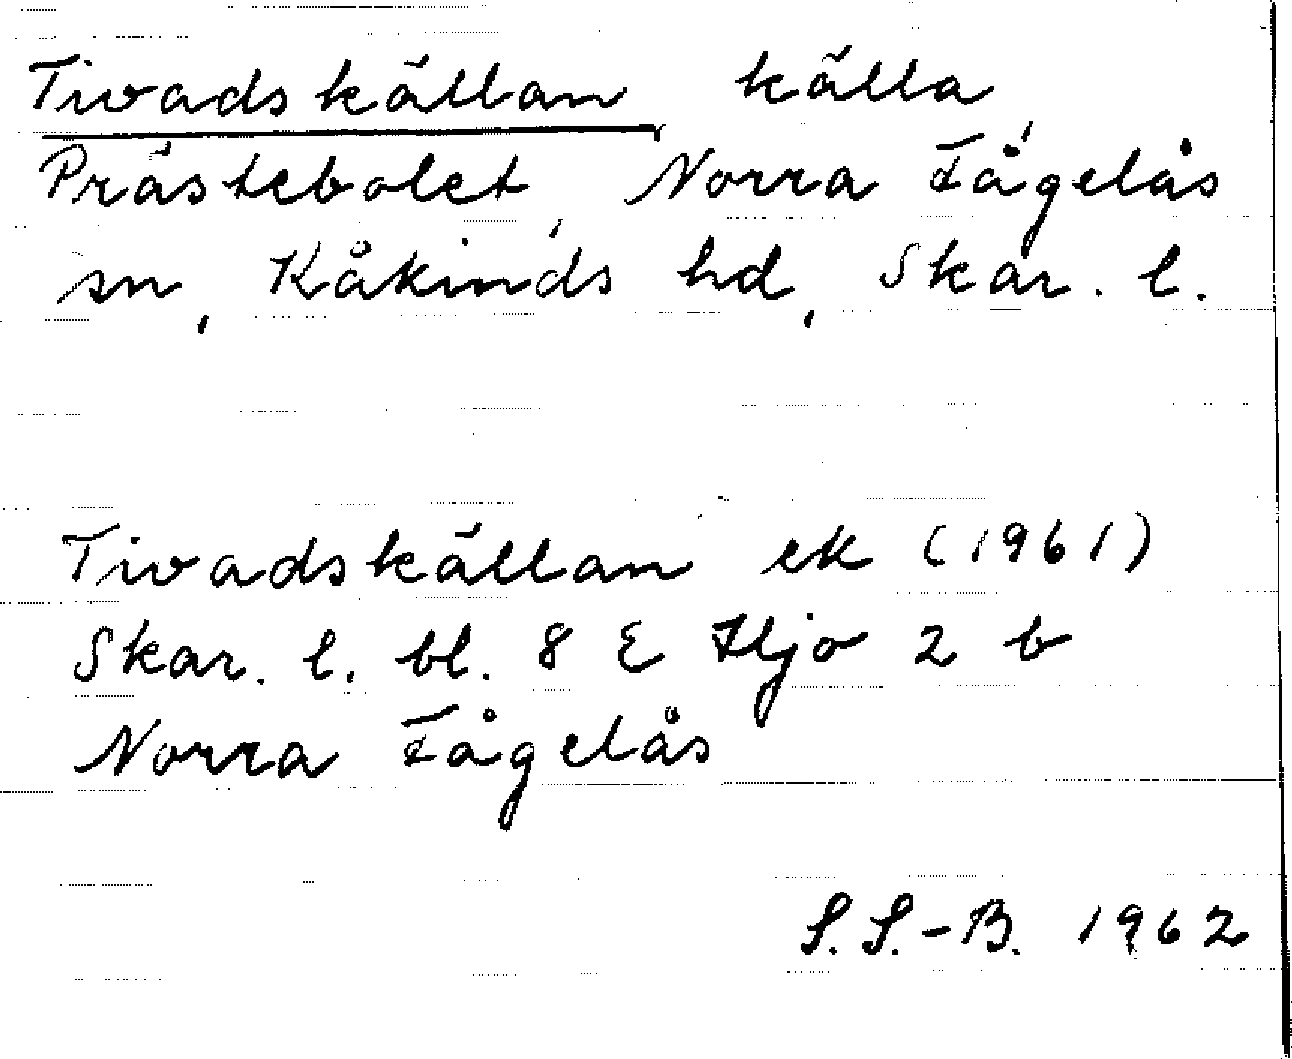 Tivadskällan, källa,
Prästebolet, Norra Fågelås
sn, Kåkinds hd, Skar. l.
Tivadskällan ek (1961)
Skar. l. bl. 8 E Hjo 2 b
Norra Fågelås
S. S.-B. 1962